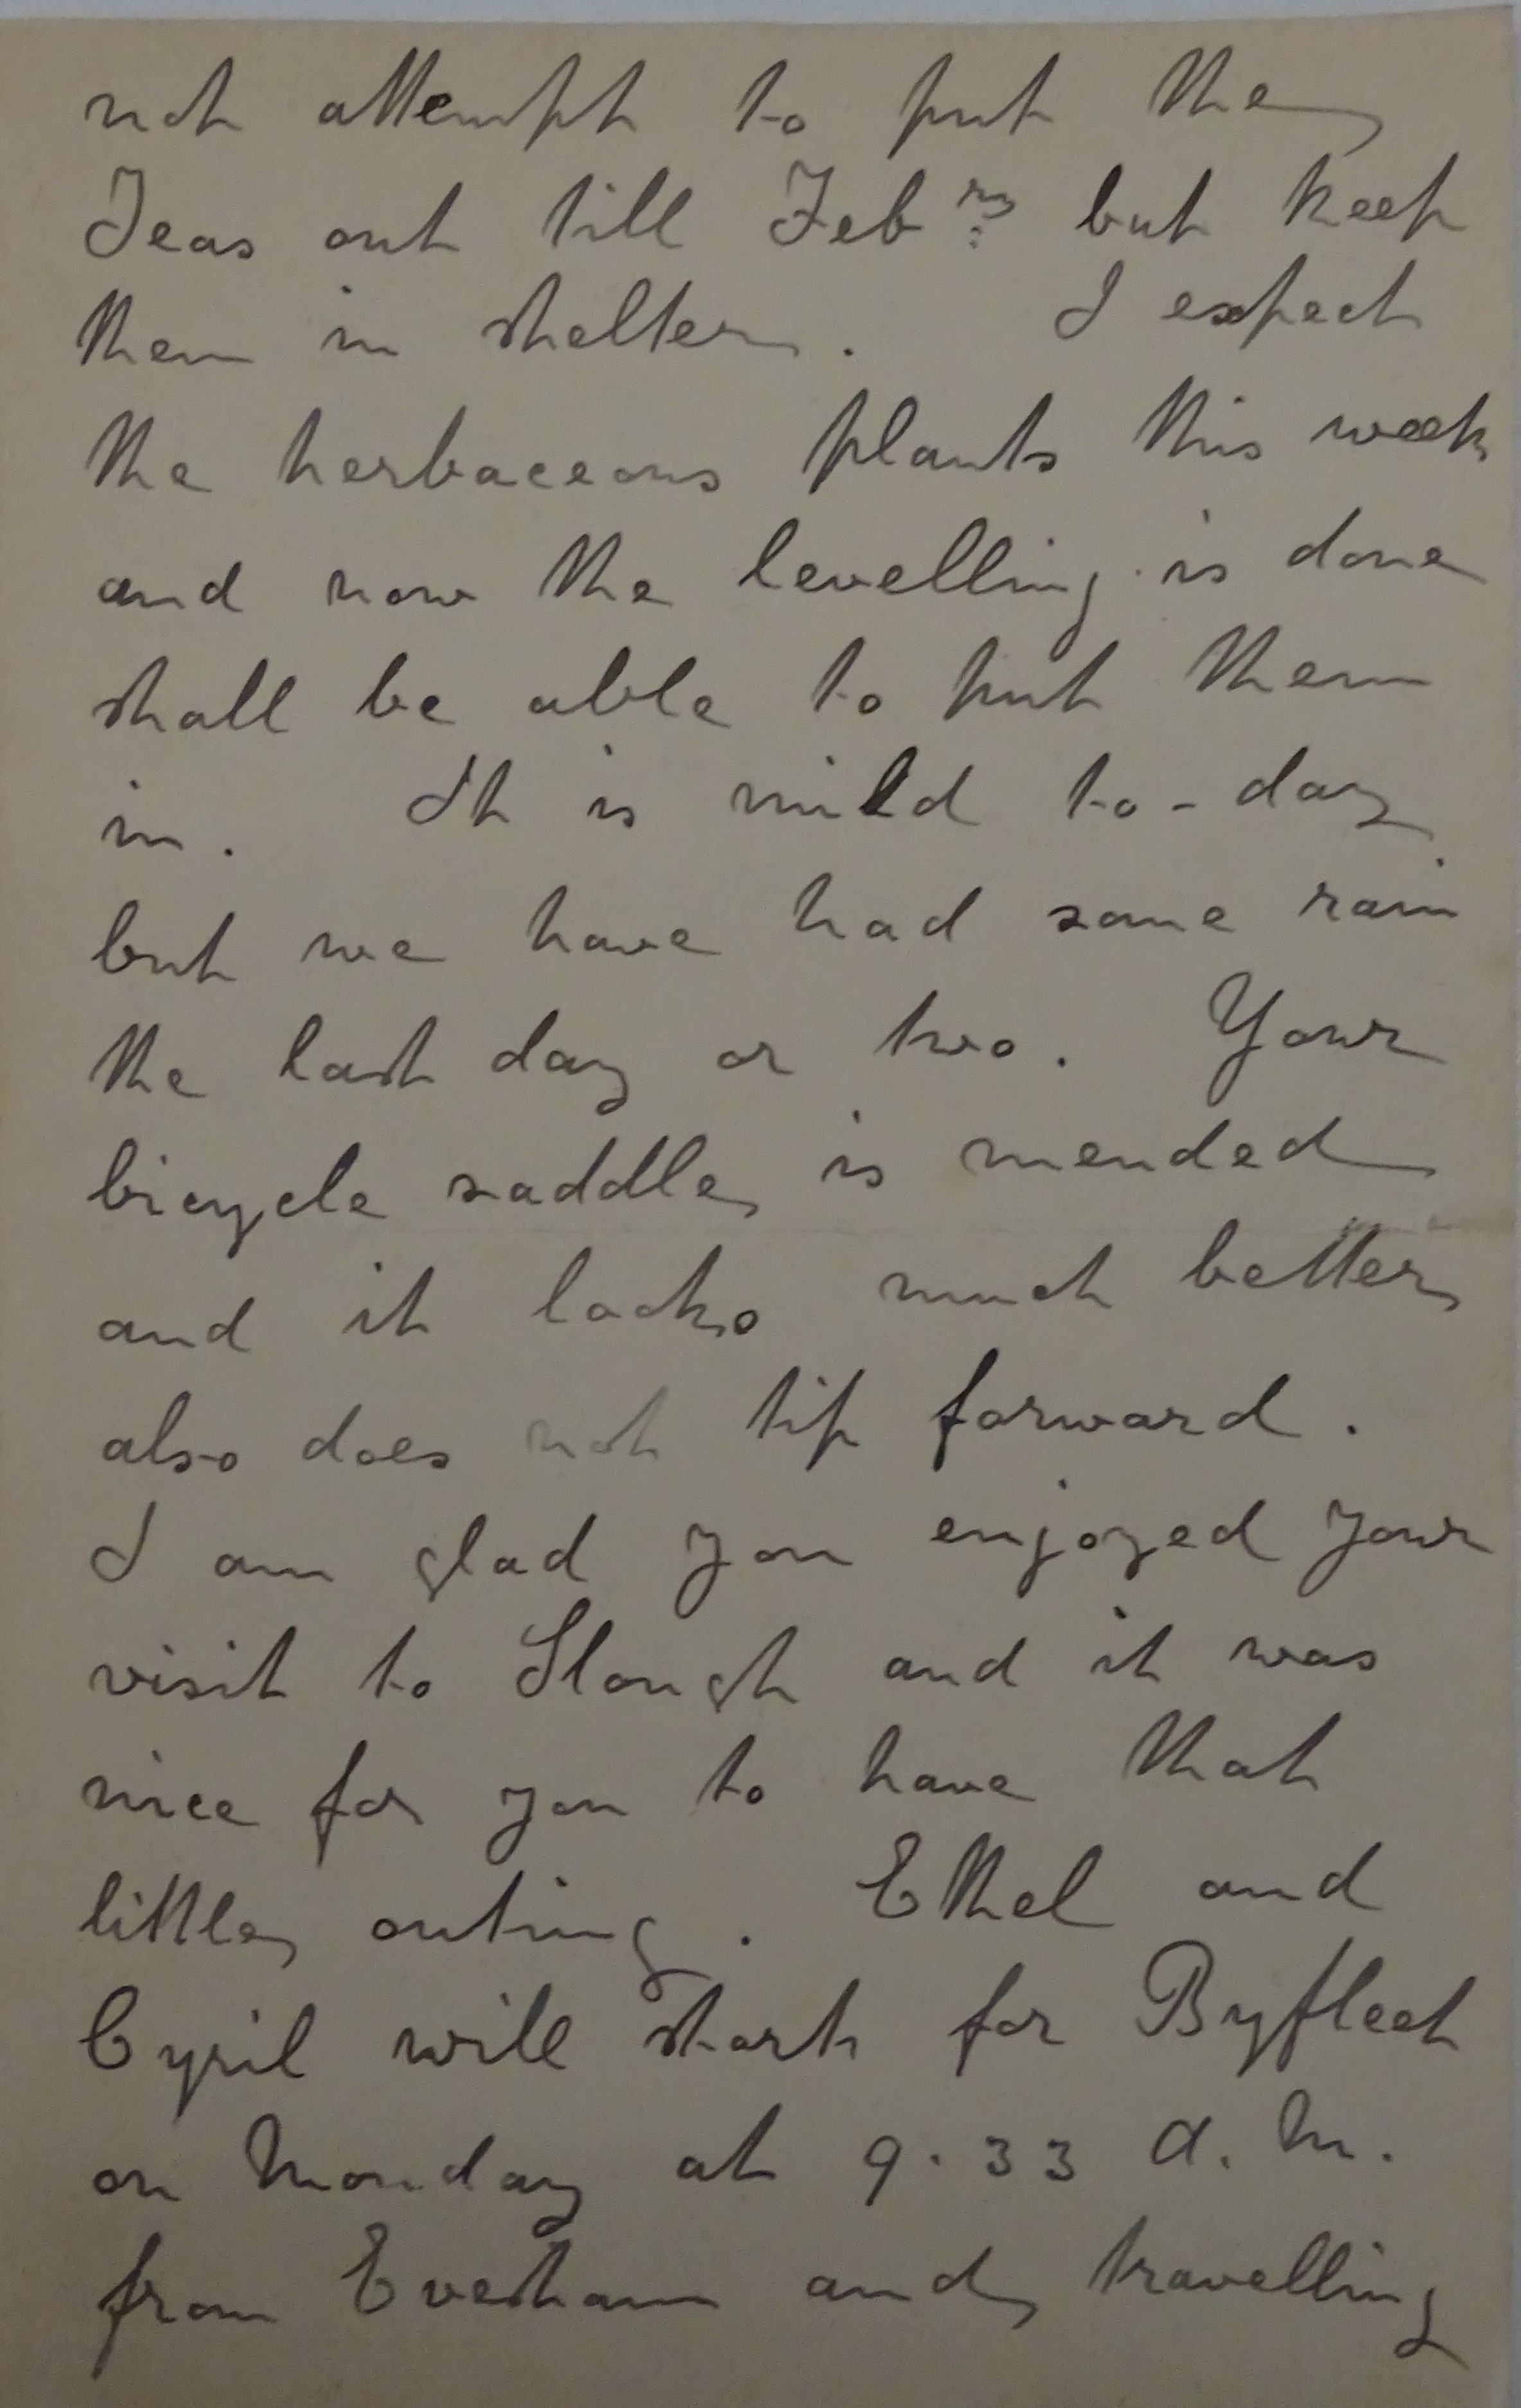 not attempt to put the
Teas out till Febry but keep
them in shelter. I expect
the herbaceous plants this week
and now the levelling is done
shall be able to put them
in. It is mild to-day
but we have had some rain
the last day or two. Your
bicycle saddle is mended
and it looks much better
also does not tip forward.
I am glad you enjoyed your
visit to Slough and it was
nice for you to have that
little outing. Ethel and
Cyril will start for Byfleet
on Monday at 9.33 a.m.
from Evesham and travelling